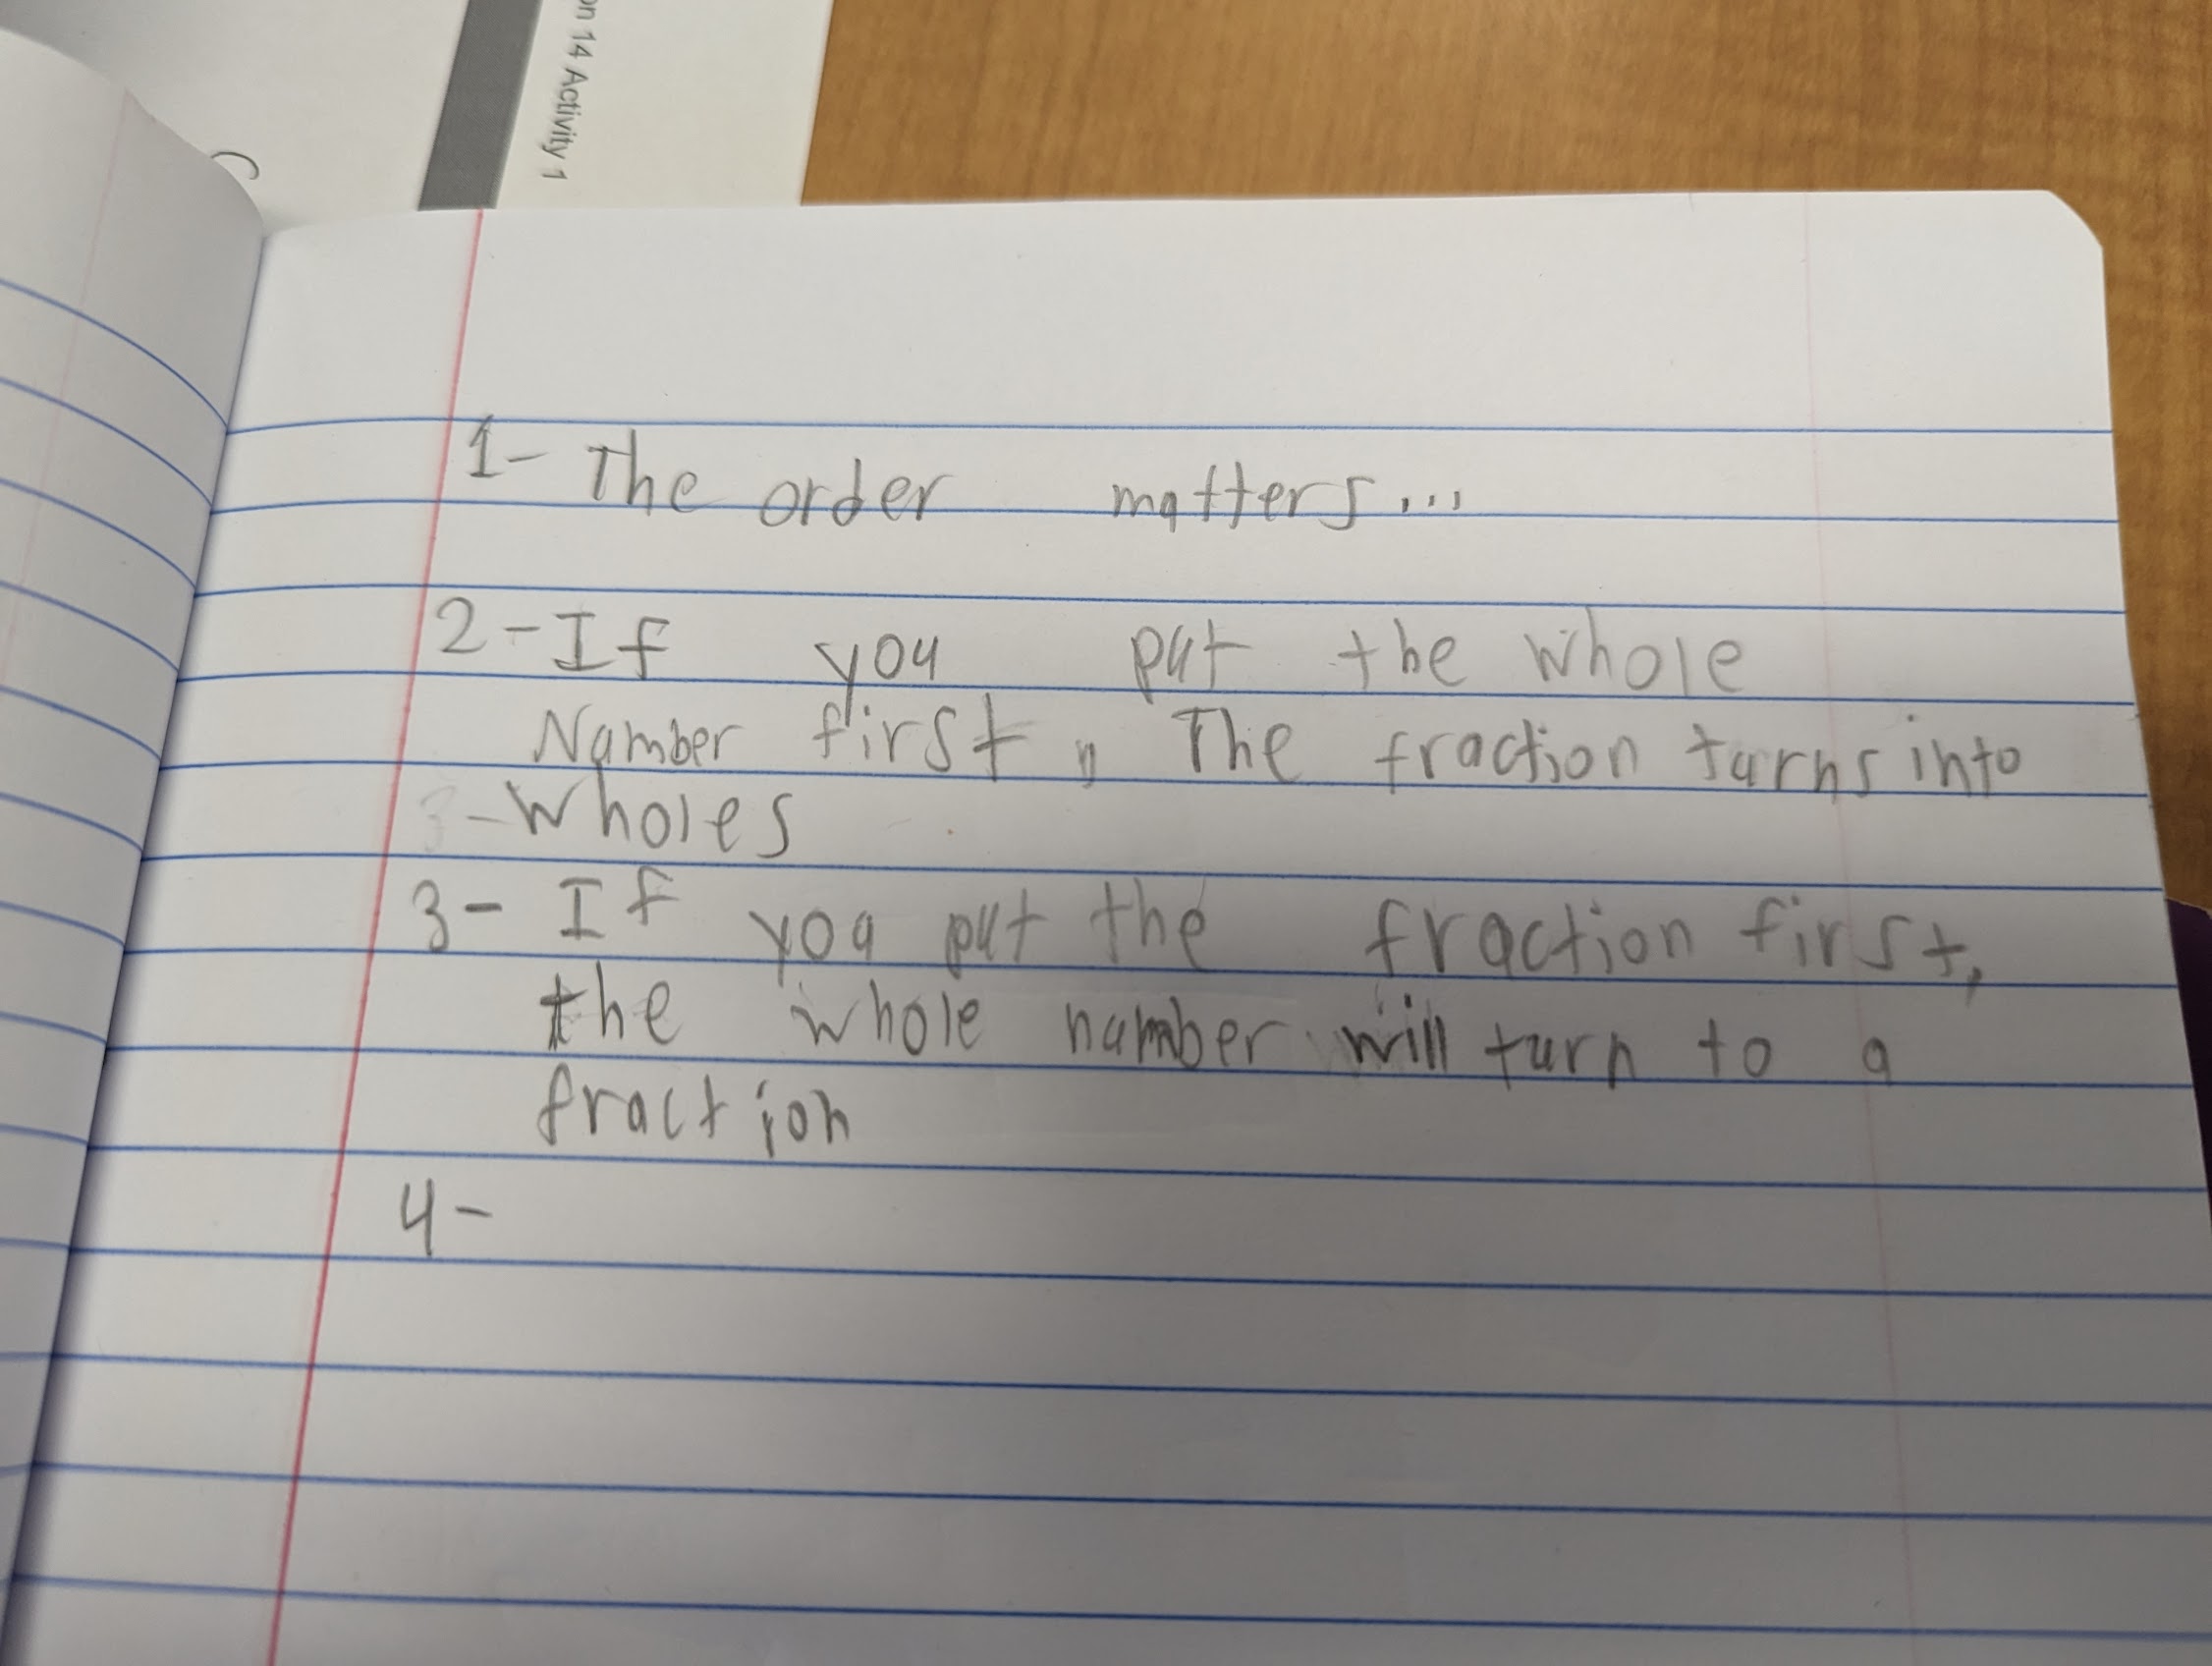 on 14 Activity 1
1- The order matters...
2-If you put the whole
Number first, The fraction turns into
3-Wholes
3- If you put the fraction first,
the whole number will turn to a
fraction
4-